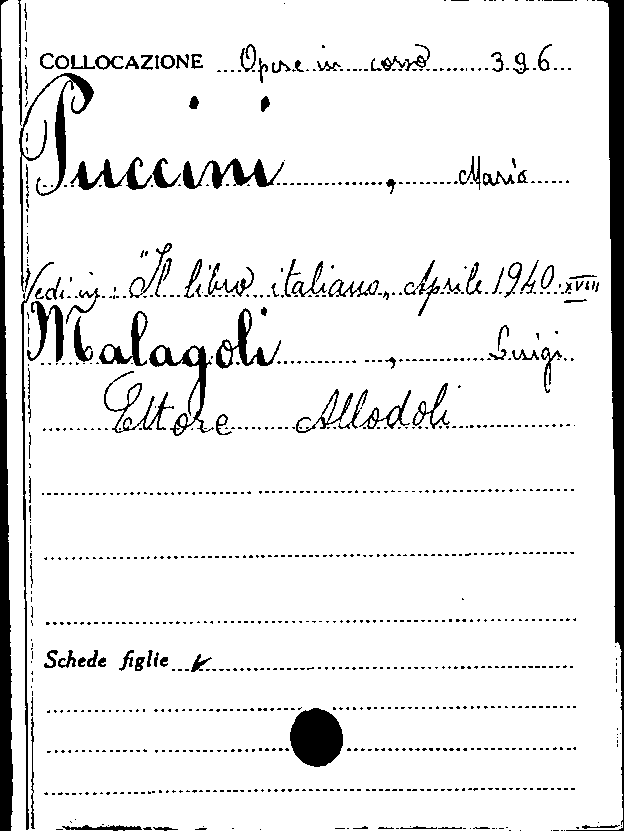 COLLOCAZIONE Opere in corso 396
Puccini, Mario
Vedi in: "Il libro italiano" Aprile 1940 XVIII
Malagoli, Luigi
Ettore Allodoli
Schede figlie